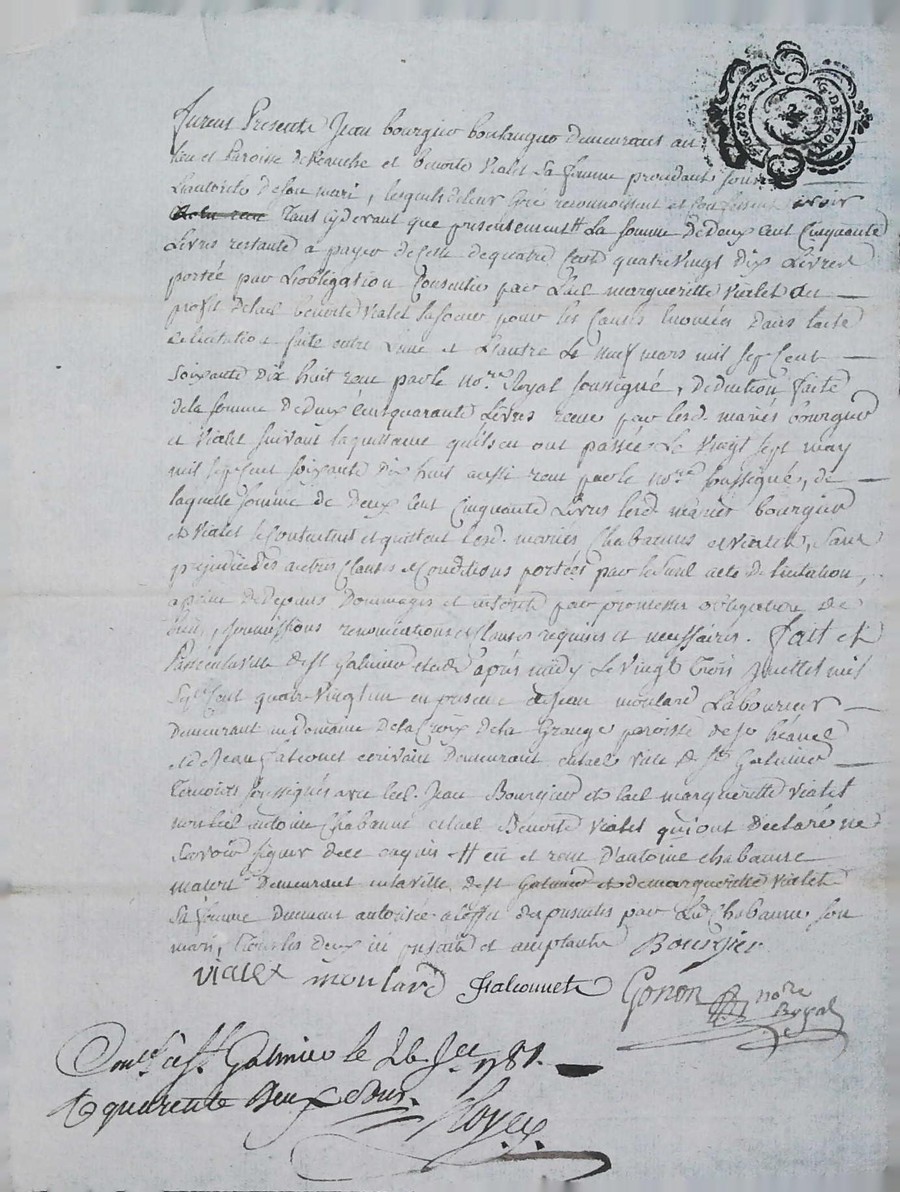 Furent Presents Jean bourgier boulanger demeurant au
lieu et Paroisse de et benoite vialet Sa femme procedant sous
L'autorité de son mari, lesquels de leur Gré reconnoissent et confessent avoir
tant cy devant que presentement la somme de deux cent Cinquante
Livres restante a payer de celle de quatre Cent quatre vingt dix Livres
portée par L'obligation Consentie par Lad. margueritte vialet au
profit de lad. benoite vialet sa soeur pour les Causes enoncées dans l'acte
de licitation faite entre L'une et L'autre Le neuf mars mil sept Cent
soixante dix huit recu par le no.re Royal soussigné, deduction faite
de la somme de deux cent quarante Livres recue par lesd. mariés bourgier
et vialet suivant la quittance qu'ils en ont passée Le vingt sept may
mil sept cent soixante dix huit aussi recu par le no.re soussigné, de
laquelle somme de deux cent Cinquante Livres lesd. mariés bourgier
et vialet se contentent et quittent lesd. mariés Chabanne et vialet, sans
prejudice des autres Clauses et Conditions portées par le susd. acte de licitation,
a peine de depens Dommages et interets par promesse obligation de
biens, soumissions renonciations et clauses requises et necessaires. Fait et
Passé en la ville de St. Galmier etude aprés midy Le vingt trois Juillet mil
sept Cent quatre vingt un en presence de Jean moulard Laboureur
demeurant au Domaine de la Croix de la Grange paroisse de St.
et de Jean falconet ecrivant Demeurant en lad. ville de St. Galmier
temoins soussignés avec led. Jean Bourgier et lad. marguerette vialet
non led. antoine Chabanne et lad. Benoite vialet qui ont declaré ne
savoir signer de ce enquis # eu et recu D'antoine chabanne
Demeurant en la ville de St. Galmier et de marguerette vialet
Sa femme dument autorisée a l'effet des presentes par Led. Chabanne son
mari, tous les deux ici presents et acceptants Bourgier
vialet moulard falconnet Gonon no.re
Royal
Con.lé à St. Galmier le 26 Jet. 1781.
R quarente Deux sous. Royer
G. DE LYON